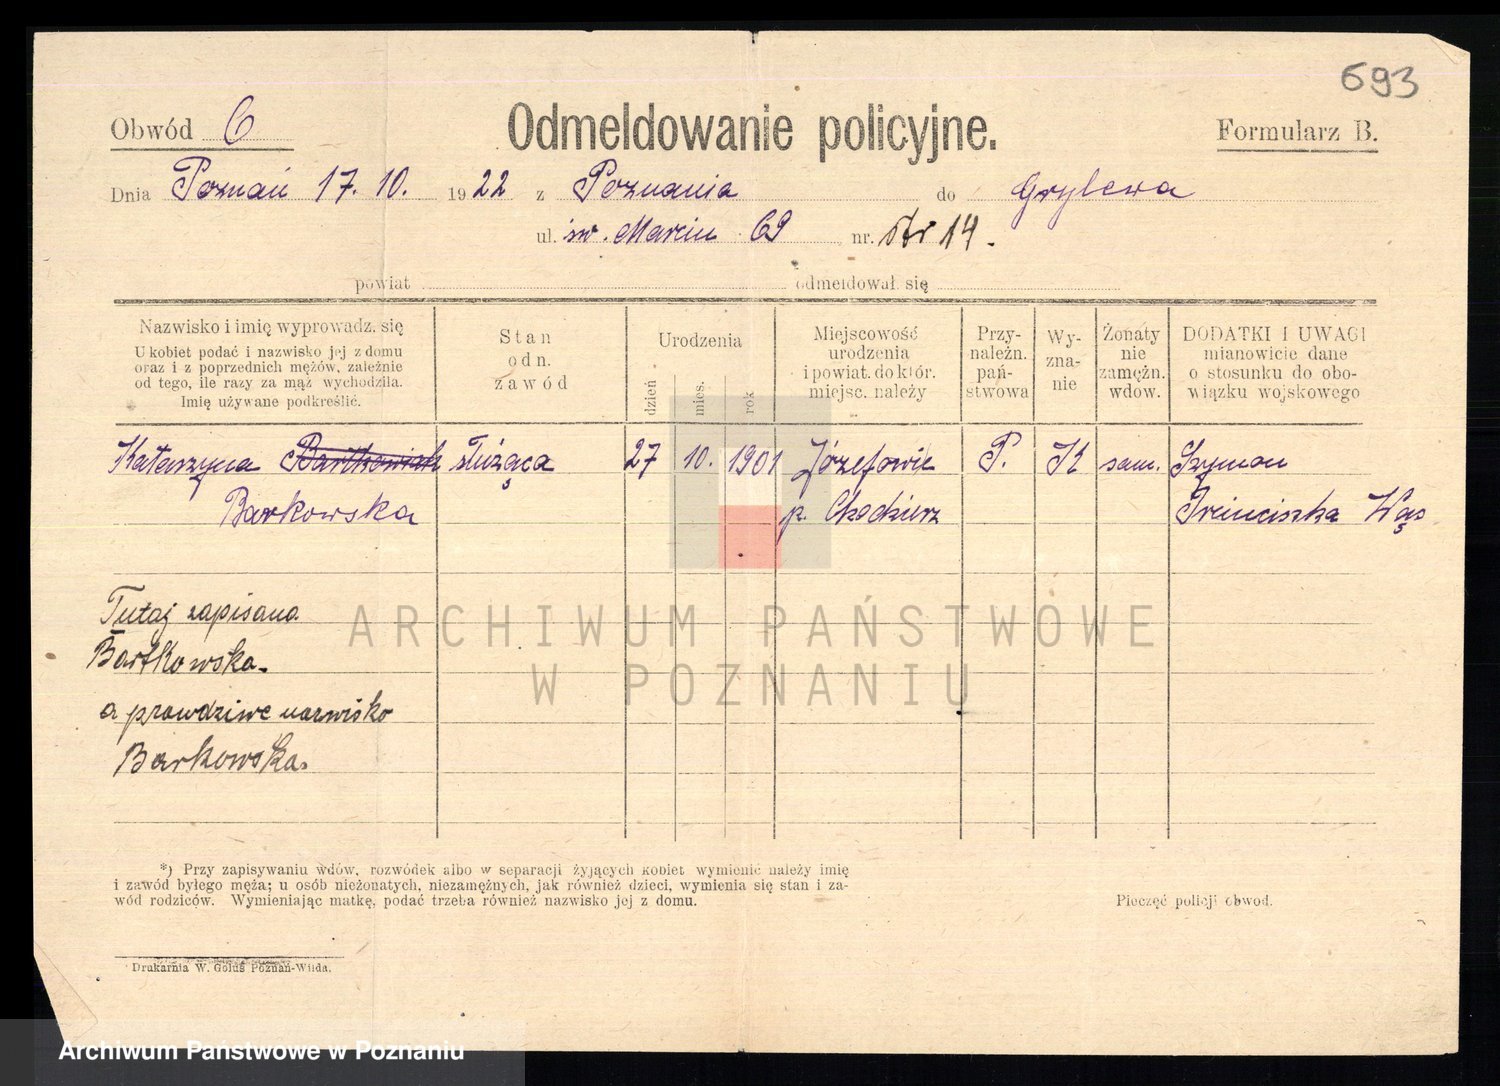 693
Obwód C
Odmeldowanie policyjne.
Formularz B.
Dnia Poznań 17. 10. 1922 z Poznania do Grylewa
ul. św. Marcin 69 nr. Nr 14.
powiat odmeldował się
Nazwisko i imię wyprowadz. się
U kobiet podać i nazwisko jej z domu
oraz i z poprzednich mężów, zależnie
od tego, ile razy za mąż wychodziła.
Imię używane podkreślić.
Stan
odn.
zawód
Urodzenia
dzień
mies.
rok
Miejscowość
urodzenia
i powiat. do któr.
miejsc. należy
Przy-
należn.
pań-
stwowa
Wy-
zna-
nie
Żonaty
nie
zamężn.
wdow.
DODATKI I UWAGI
mianowicie dane
o stosunku do obo-
wiązku wojskowego
Katarzyna Bartkowiak służąca 27 10. 1901 Józefowie P. K sam. Szymon
Barkowska p. Chodzierz Franciszka Wąs
Tutaj zapisana
Bartkowska.
a prawdziwe nazwisko
Barkowska.
ARCHIWUM PAŃSTWOWE
W POZNANIU
*) Przy zapisywaniu wdów, rozwódek albo w separacji żyjących kobiet wymienić należy imię
i zawód byłego męża; u osób nieżonatych, niezamężnych, jak również dzieci, wymienia się stan i za-
wód rodziców. Wymieniając matkę, podać trzeba również nazwisko jej z domu.
Pieczęć policji obwod.
Drukarnia W. Goluś Poznań-Wilda.
Archiwum Państwowe w Poznaniu